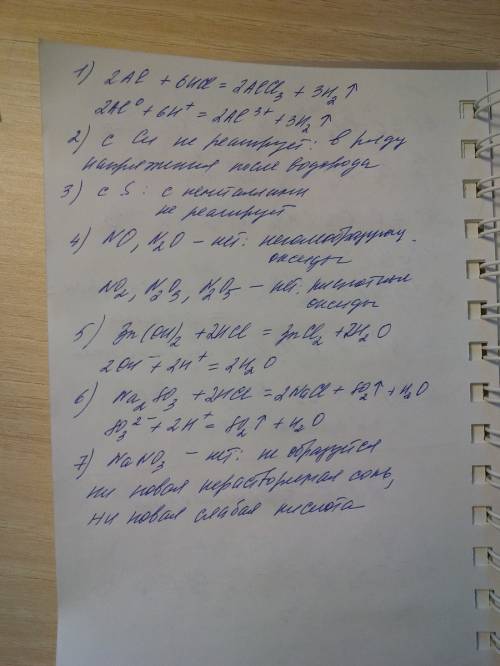 1) 2Al + 6HCl = 2AlCl₃ + 3H₂↑
2Al⁰ + 6H⁺ = 2Al³⁺ + 3H₂↑
2) с Cu не реагирует: в ряду
напряжения после водорода
3) с S: с неметаллами
не реагирует
4) NO, N₂O – нет: несолеобразующ.
оксиды
NO₂, N₂O₃, N₂O₅ – нет: кислотные
оксиды
5) Zn(OH)₂ + 2HCl = ZnCl₂ + 2H₂O
2OH⁻ + 2H⁺ = 2H₂O
6) Na₂SO₃ + 2HCl = 2NaCl + SO₂↑ + H₂O
SO₃²⁻ + 2H⁺ = SO₂↑ + H₂O
7) NaNO₃ – нет: не образуется
ни новая нерастворимая соль,
ни новая слабая кислота